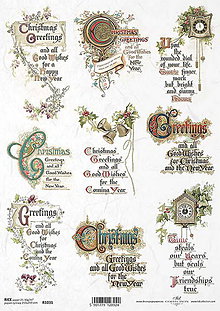 Christmas
Greetings
and all
Good Wishes
for a
Happy
New Year
Christmas
Greetings
and all
Good Wishes
for the
New Year
Upon
the
rounded dial
of your life,
Time's finger
mark
but bright
and sunny
Hours
Christmas
Greetings and all
Good Wishes
for the
New Year
Christmas
Greetings
and all
Good Wishes
for the
Coming Year
Greetings
and all
Good Wishes
for Christmas
and the
Coming Year
Greetings
and
Good Wishes
for
Christmas
and the
Coming Year
Christmas
Greetings
and all Good Wishes
for the New Year
Time
steals
our Years
but seals
our
Friendships
true
RICE
R1035